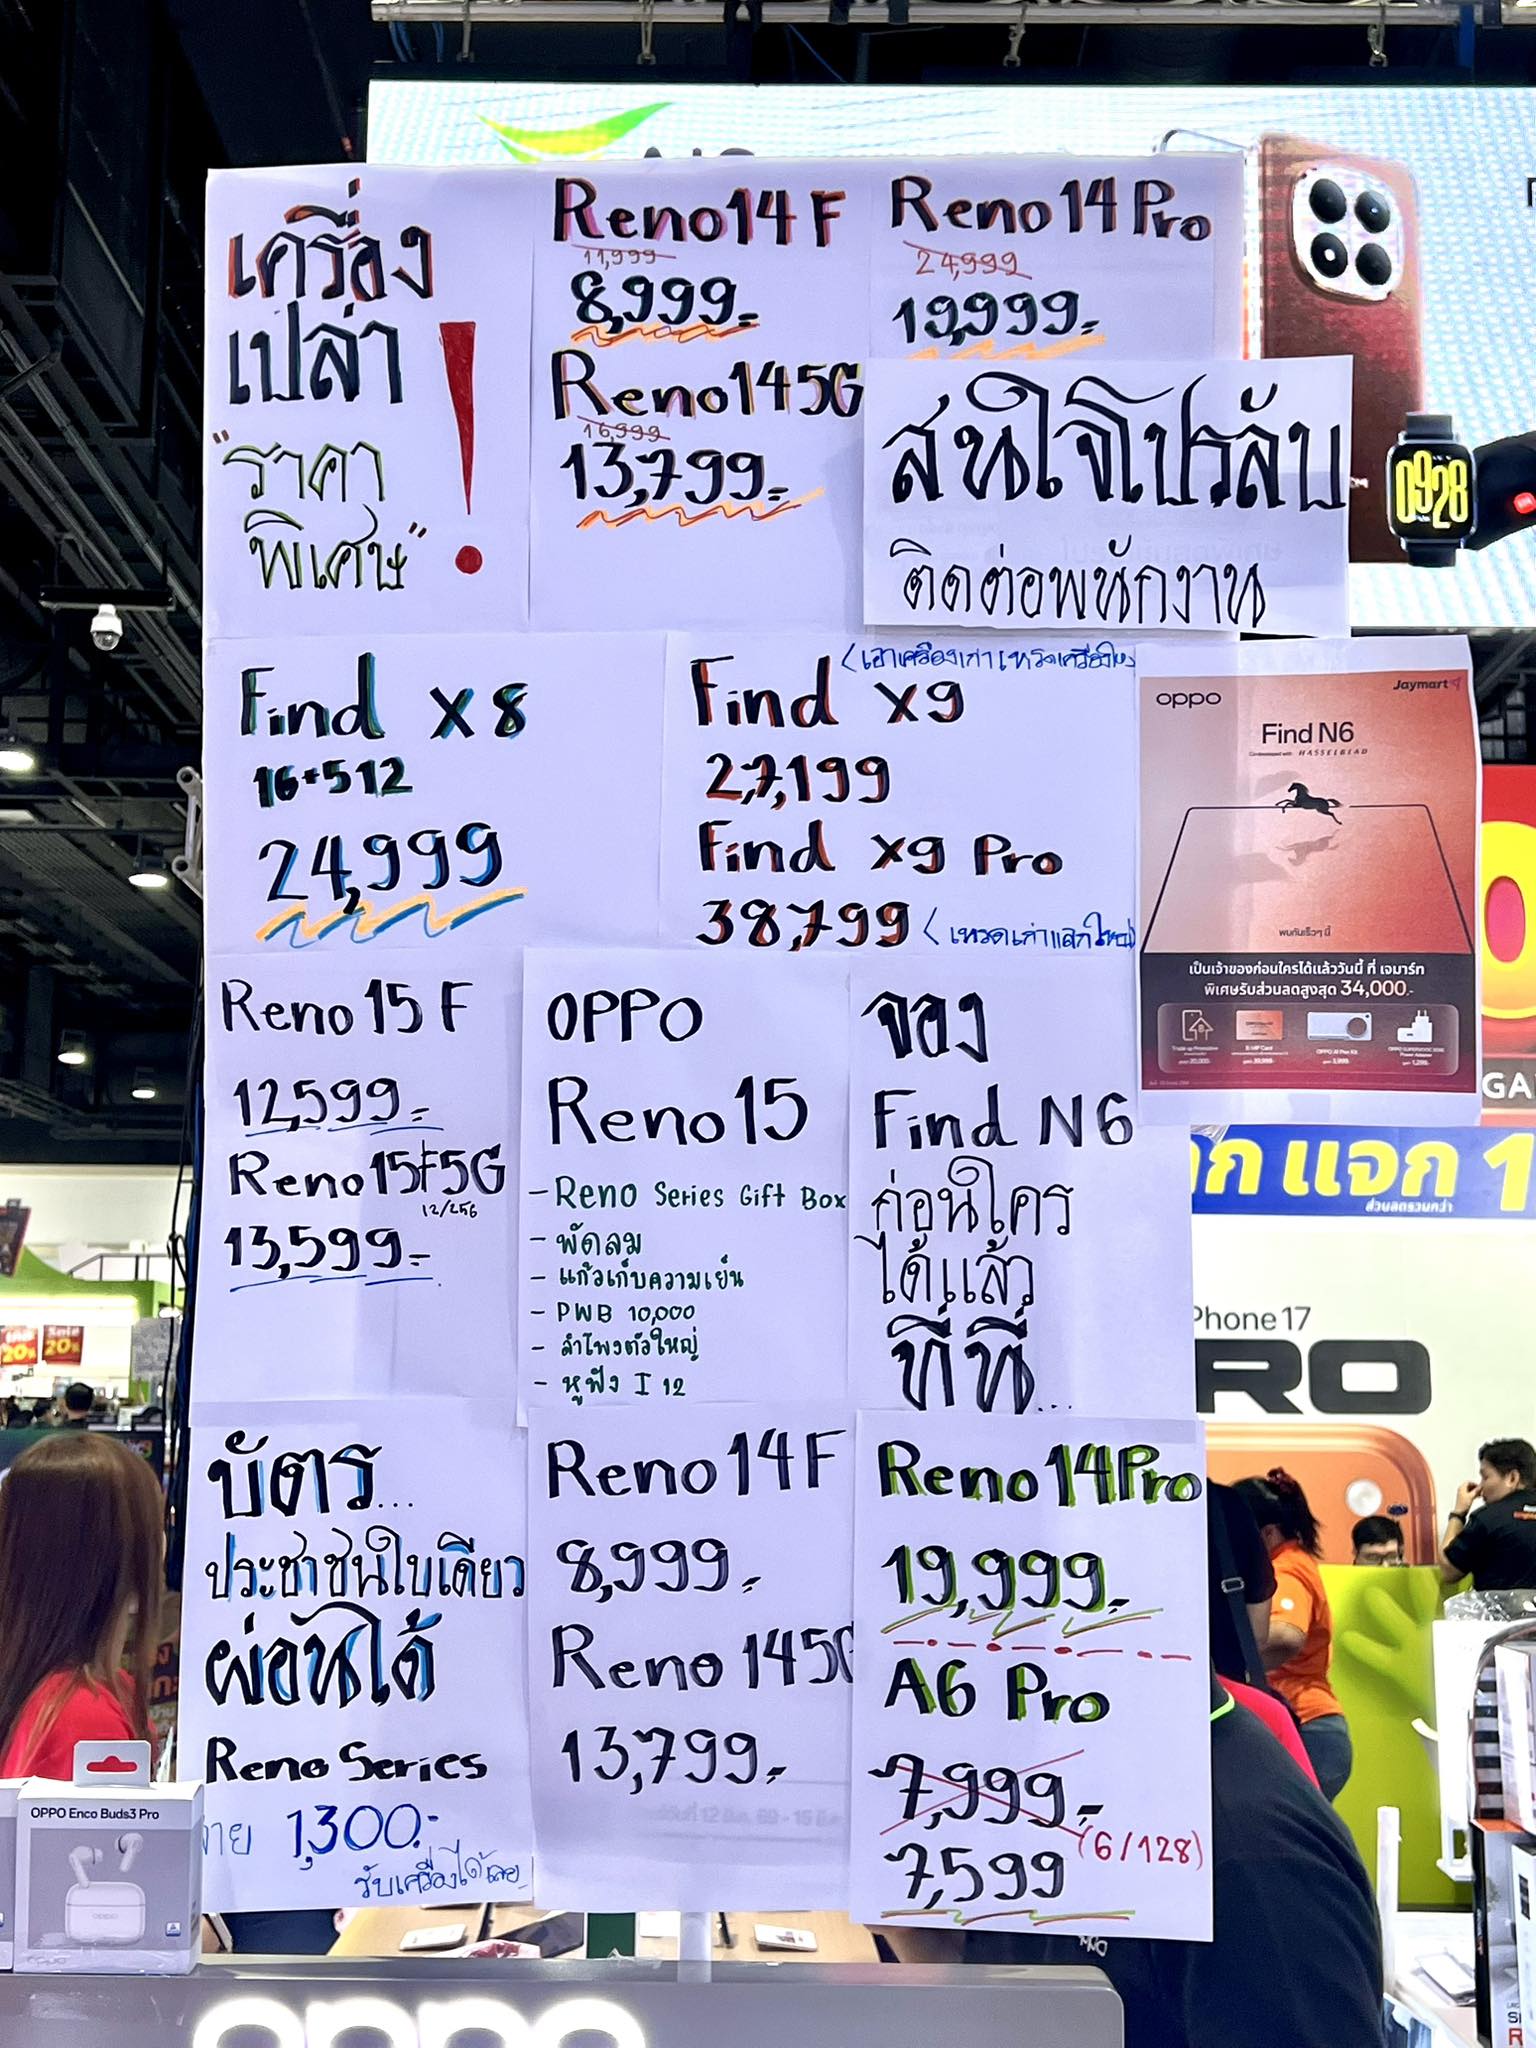 เครื่อง
เปล่า !
"ราคา
พิเศษ"
Reno14 F
11,999
8,999.-
Reno14 5G
16,999
13,799.-
Reno14 Pro
24,999
19,999.-
สนใจโปรลับ
ติดต่อพนักงาน
0928
Find X8
16+512
24,999
(เอาเครื่องเก่าเทรดเครื่องใหม่
Find X9
27,199
Find X9 Pro
38,799 (เทรดเก่าแลกใหม่)
oppo
Jaymart
Find N6
Co-developed with HASSELBLAD
พบกันเร็วๆ นี้
เป็นเจ้าของก่อนใครได้แล้ววันนี้ ที่ เจมาร์ท
พิเศษรับส่วนลดสูงสุด 34,000.-
Reno 15 F
12,599.-
Reno 15F 5G
12/256
13,599.-
OPPO
Reno 15
- Reno Series Gift Box
- พัดลม
- แก้วเก็บความเย็น
- PWB 10,000
- ลำโพงตัวใหญ่
- หูฟัง I 12
จอง
Find N6
ก่อนใคร
ได้แล้ว
ที่นี่...
แจก 1
ส่วนลดรวมกว่า
Phone 17
RO
บัตร...
ประชาชนใบเดียว
ผ่อนได้
Reno Series
จ่าย 1,300.-
รับเครื่องได้เลย
Reno 14F
8,999.-
Reno 14 5G
13,799.-
Reno 14 Pro
19,999.-
A6 Pro
7,999.-
(6/128)
7,599
Sale
20%
OPPO Enco Buds3 Pro
oppo
oppo